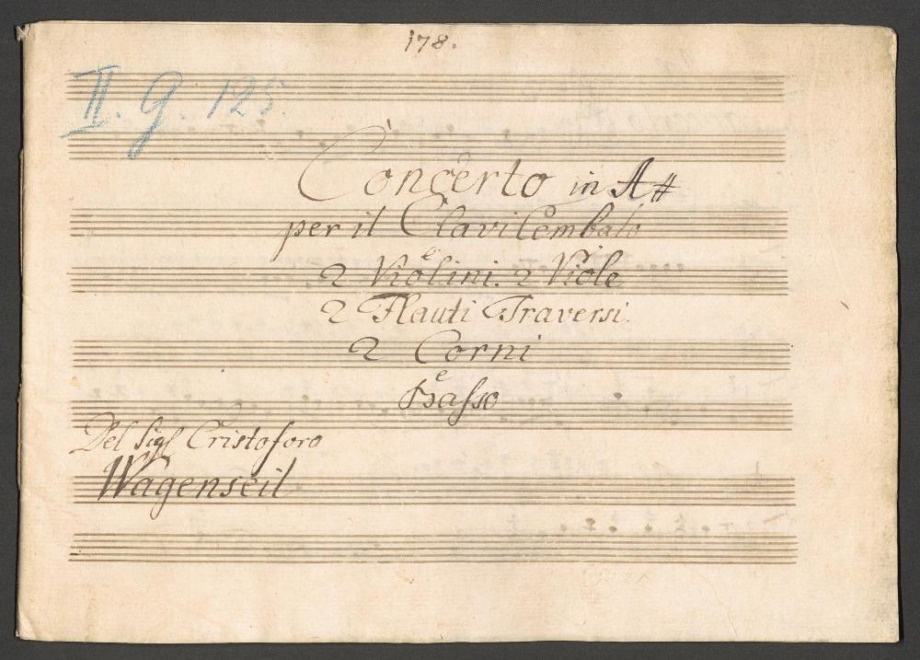 178.
II. G. 125.
Concerto in A#
per il Clavi Cembalo
e
2 Violini. 2 Viole
2 Flauti Traversi.
2 Corni
e
Basso
Del Sigl Cristoforo
Wagenseil